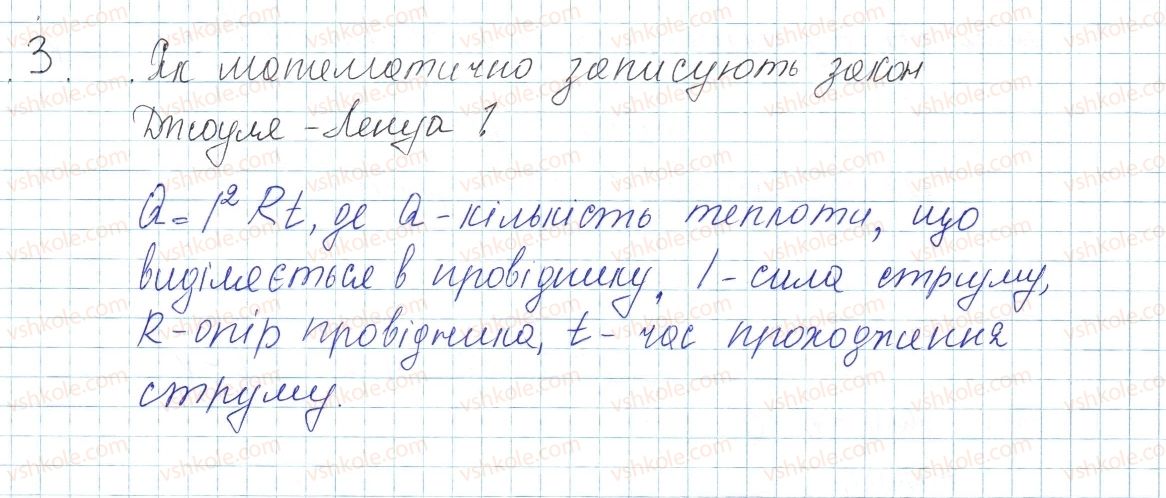 3. Як математично записують закон
Джоуля - Ленца?
Q = I² Rt, де Q - кількість теплоти, що
виділяється в провіднику, I - сила струму,
R - опір провідника, t - час проходження
струму.